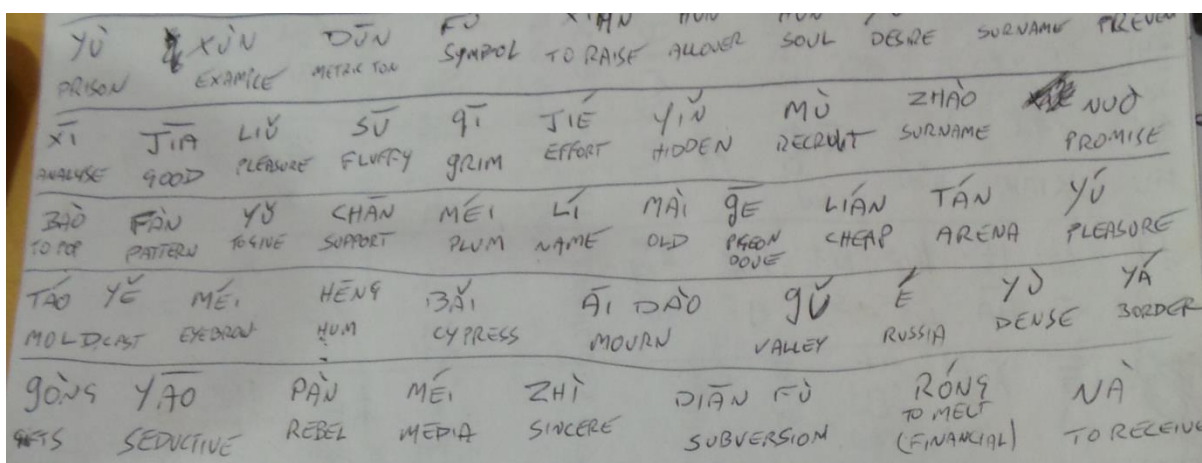 YÙ XÙN DŪN FÚ SURNAME
PRISON EXAMPLE METRIC TON SYMBOL TO RAISE ALLOVER SOUL DESIRE
XĪ JIĀ LIǓ SŪ qĪ JIÉ YǏN MÙ ZHÀO NUÒ
ANALYSE GOOD PLEASURE FLUFFY GRIM EFFORT HIDDEN RECRUIT SURNAME PROMISE
BÀO FÀN YǓ CHĀN MÉI LÍ MÀI gĒ LIÁN TÁN YÚ
TO POP PATTERN TO GIVE SUPPORT PLUM NAME OLD PIGEON CHEAP ARENA PLEASURE
DOVE
TÁO YĚ MÉI HĒNG BǍI ĀI DÀO gǓ É YÙ YÁ
MOLD,CAST EYEBROW HUM CYPRESS MOURN VALLEY RUSSIA DENSE BORDER
gÒNG YĀO PÀN MÉI ZHÌ DIĀN FÙ RÓNG NÀ
SEDUCTIVE REBEL MEDIA SINCERE SUBVERSION TO MELT TO RECEIVE
(FINANCIAL)